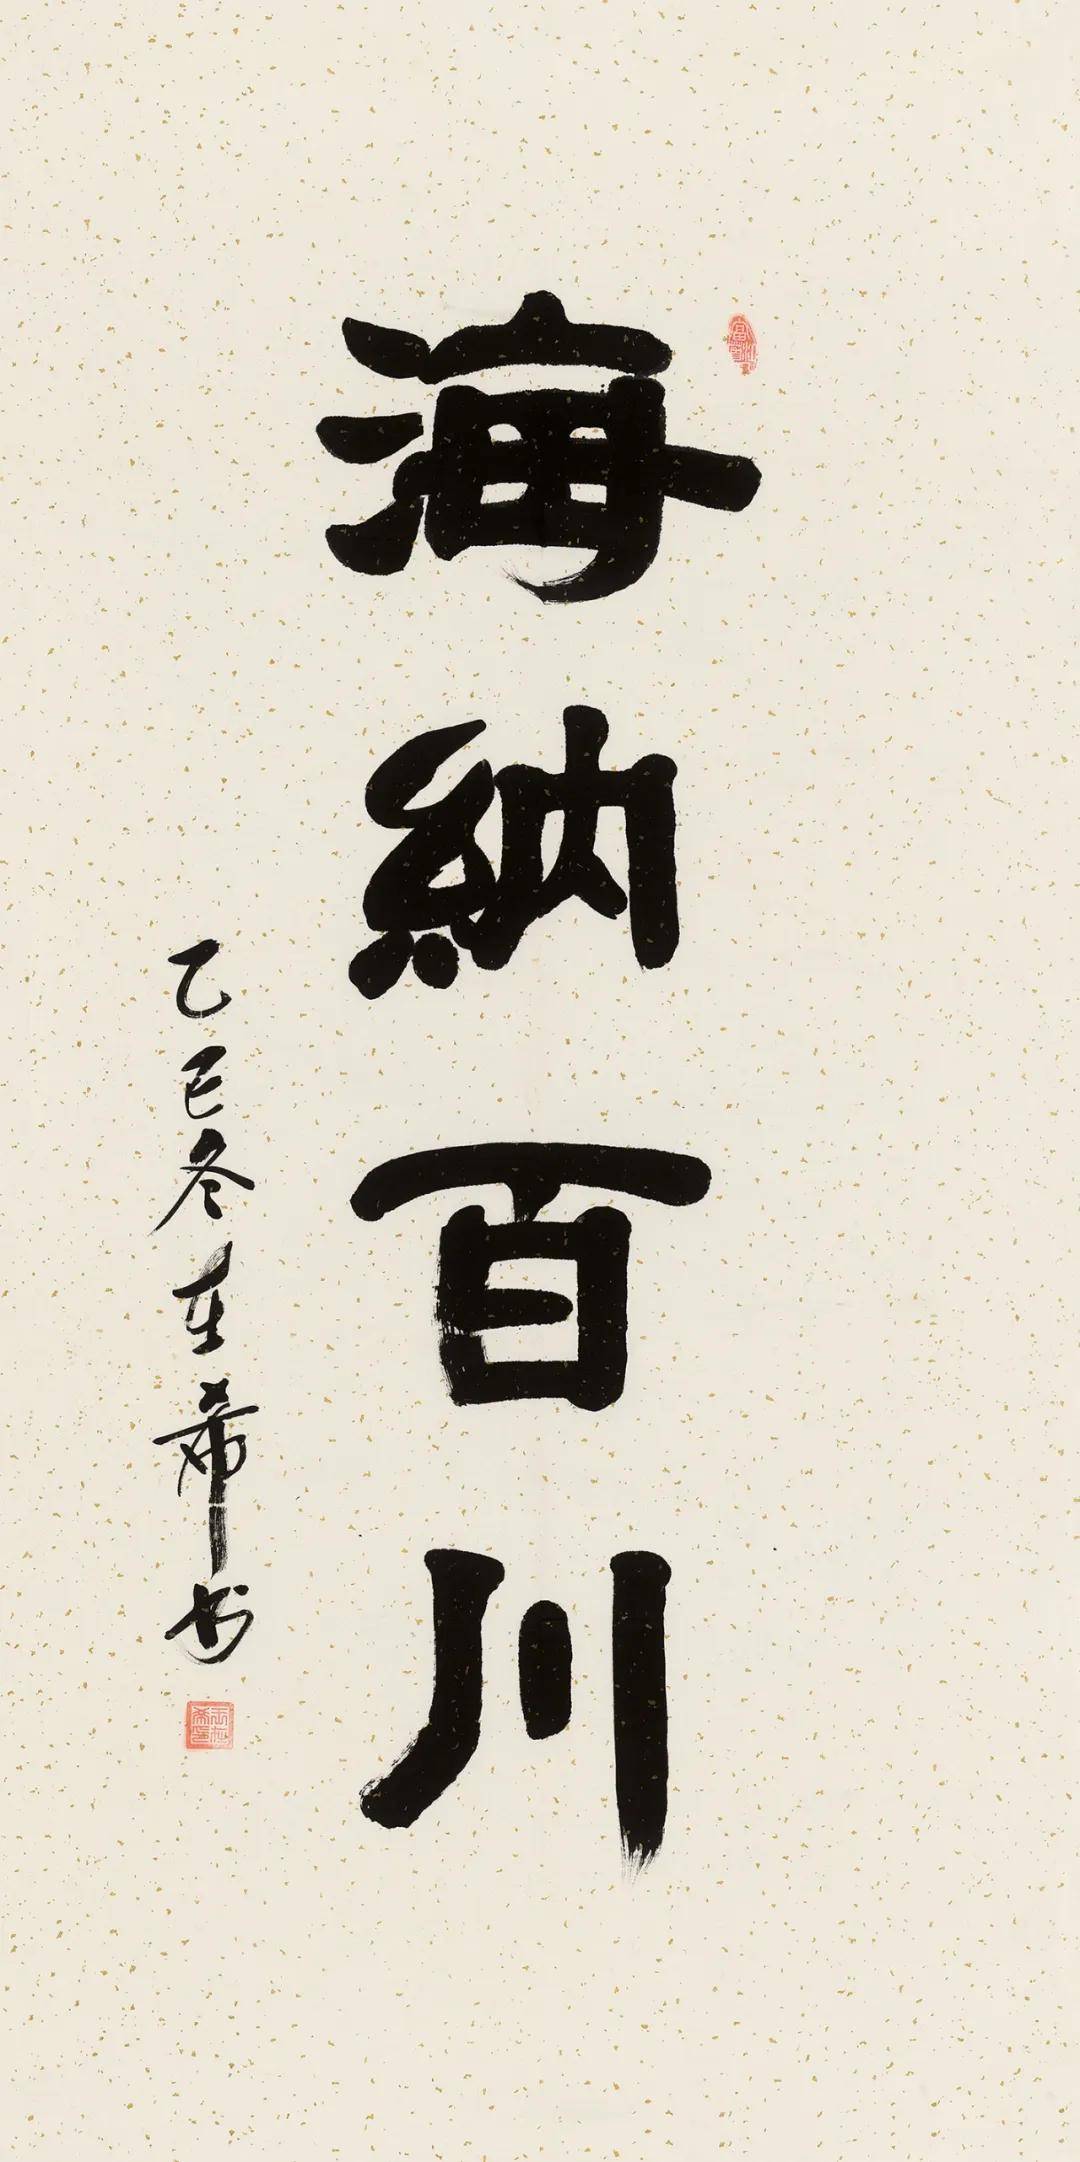 海納百川
乙巳冬在希书